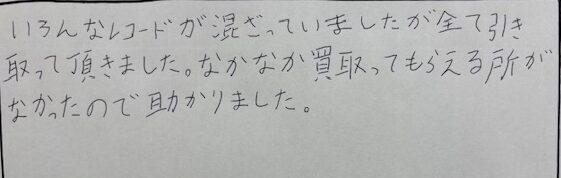 いろんなレコードが混ざっていましたが全て引き
取って頂きました。なかなか買取ってもらえる所が
なかったので助かりました。